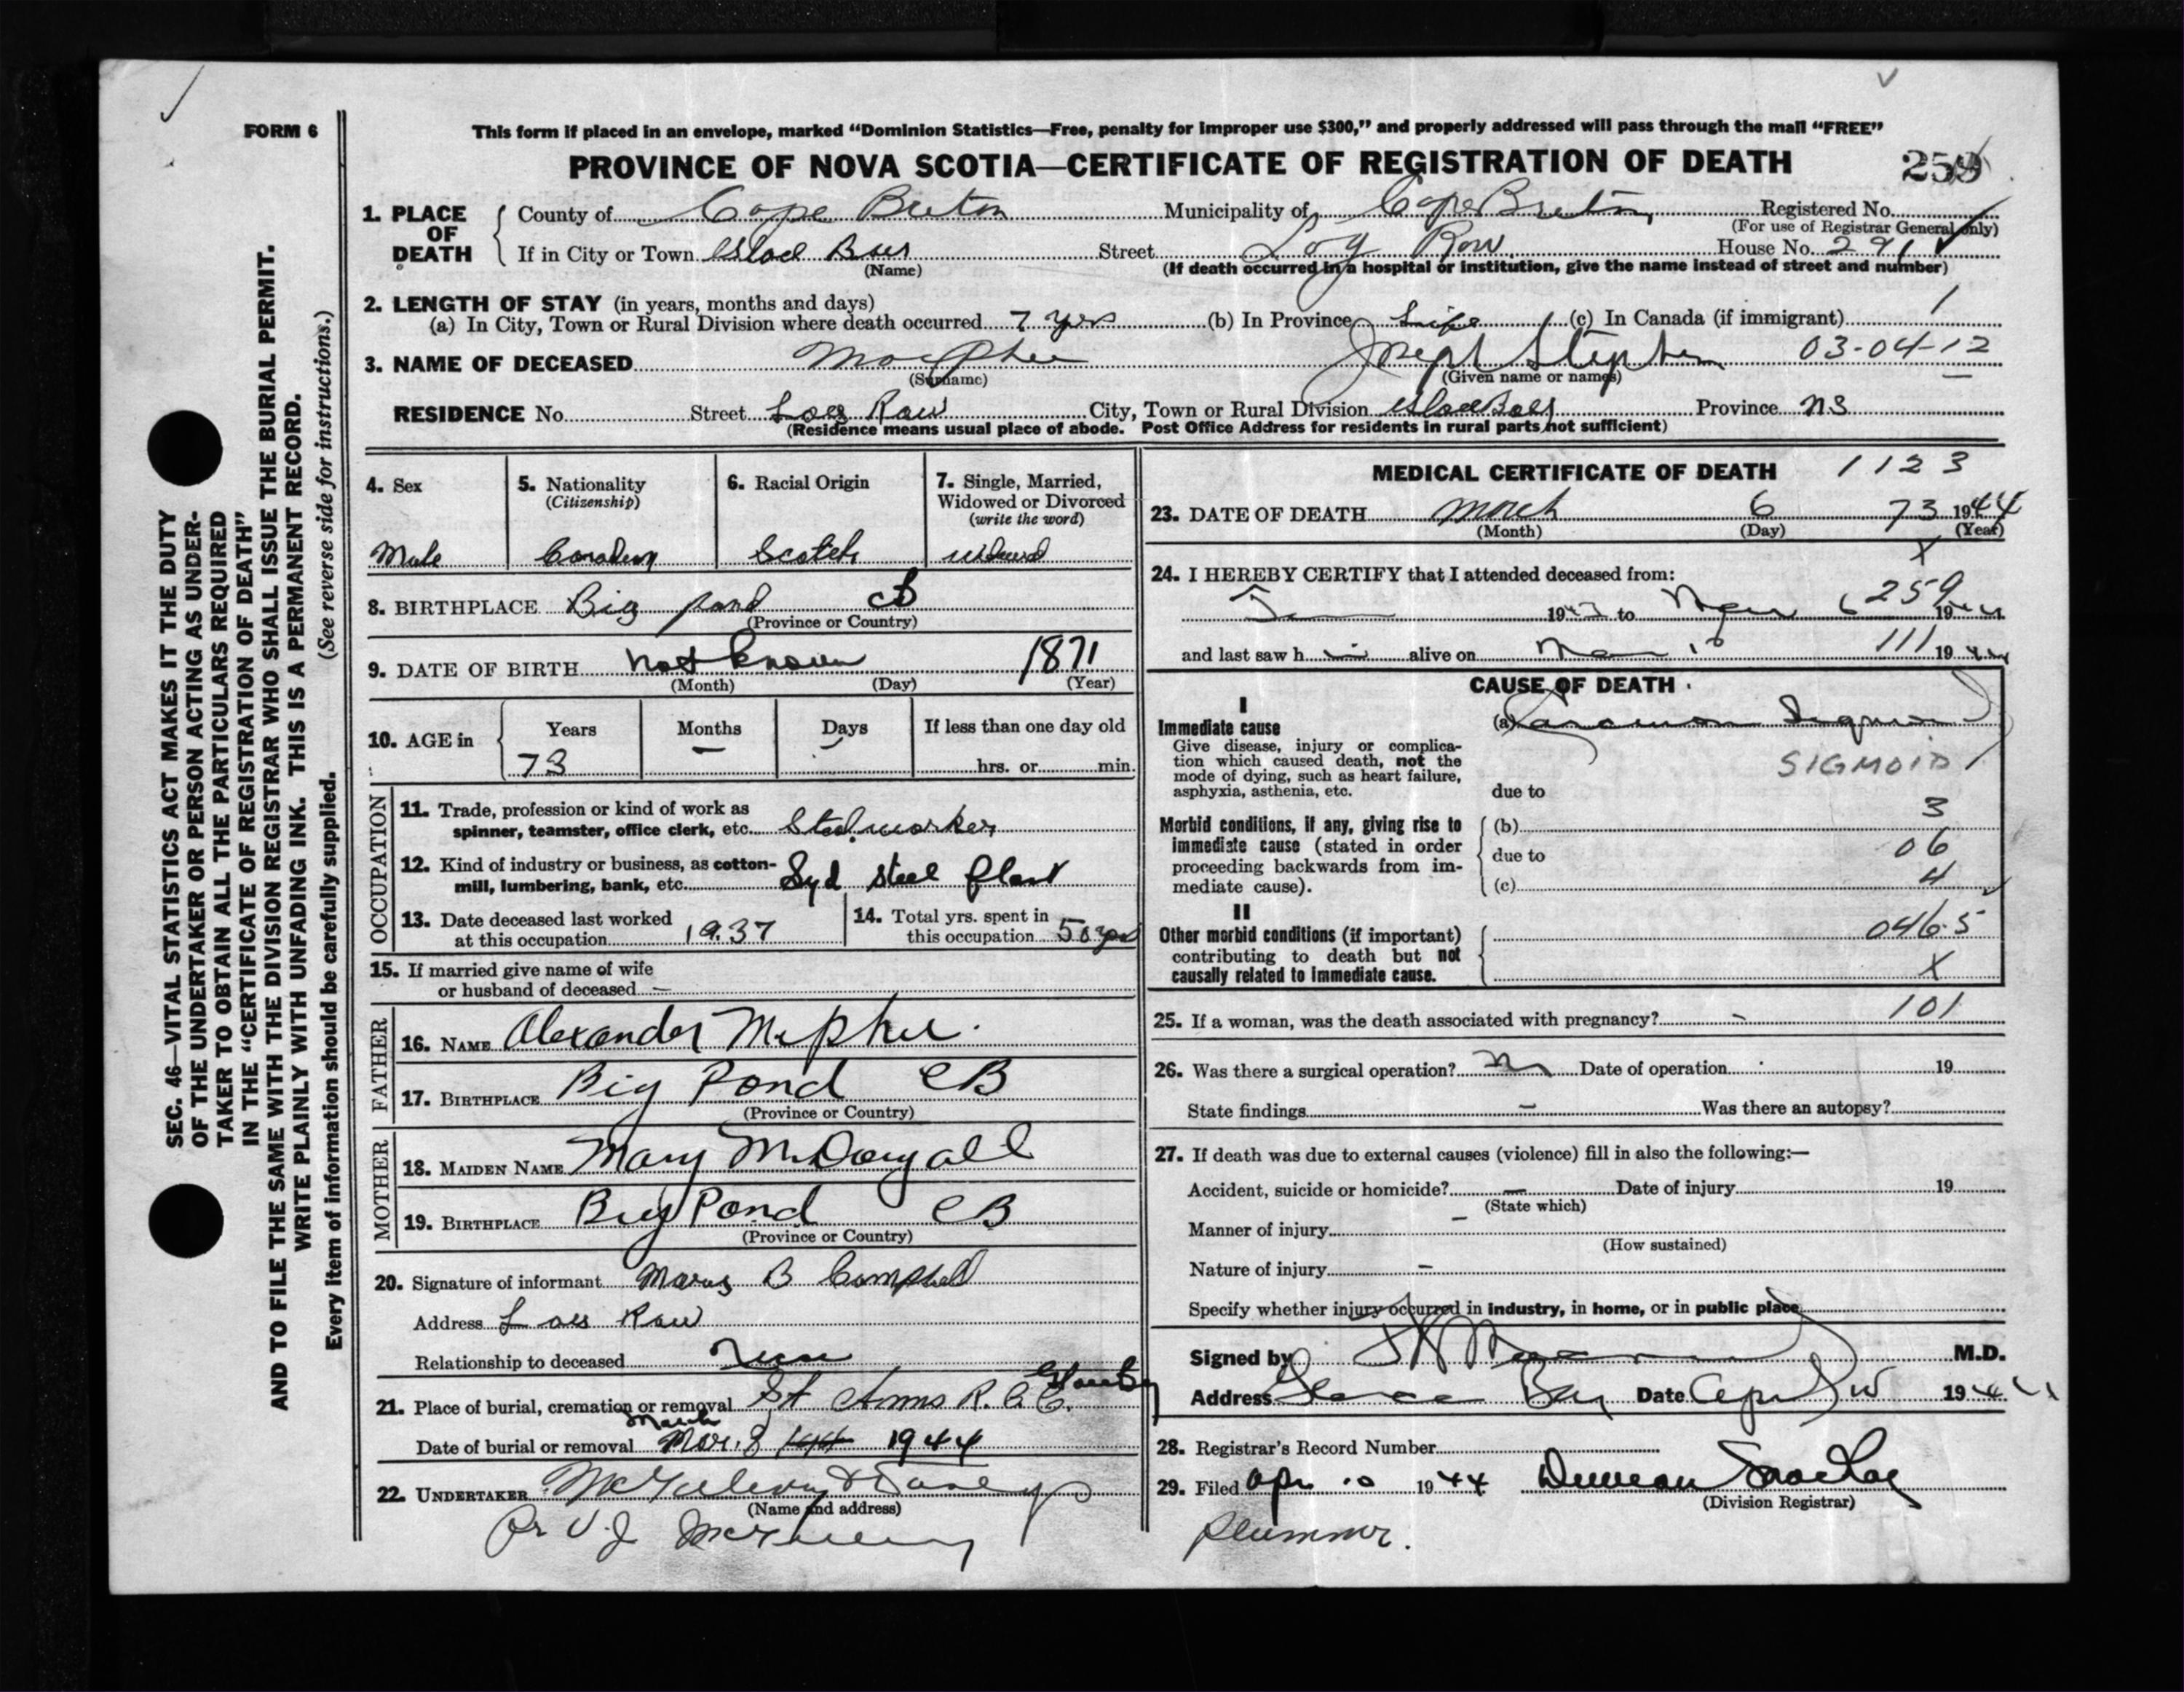 FORM 6
This form if placed in an envelope, marked “Dominion Statistics—Free, penalty for improper use $300,” and properly addressed will pass through the mail “FREE”
PROVINCE OF NOVA SCOTIA—CERTIFICATE OF REGISTRATION OF DEATH 259
SEC. 46—VITAL STATISTICS ACT MAKES IT THE DUTY
OF THE UNDERTAKER OR PERSON ACTING AS UNDER-
TAKER TO OBTAIN ALL THE PARTICULARS REQUIRED
IN THE “CERTIFICATE OF REGISTRATION OF DEATH”
AND TO FILE THE SAME WITH THE DIVISION REGISTRAR WHO SHALL ISSUE THE BURIAL PERMIT.
WRITE PLAINLY WITH UNFADING INK. THIS IS A PERMANENT RECORD.
Every item of information should be carefully supplied. (See reverse side for instructions.)
1. PLACE OF DEATH County of Cape Breton Municipality of Cape Breton Registered No.
(For use of Registrar General only)
If in City or Town Street Log Row House No. 291
(Name) (If death occurred in a hospital or institution, give the name instead of street and number)
2. LENGTH OF STAY (in years, months and days) 1
(a) In City, Town or Rural Division where death occurred 7 yrs (b) In Province Life (c) In Canada (if immigrant)
3. NAME OF DECEASED MacPhee Joseph Stephen 03-04-12
(Surname) (Given name or names)
RESIDENCE No. Street Row City, Town or Rural Division Province NS
(Residence means usual place of abode. Post Office Address for residents in rural parts not sufficient)
4. Sex 5. Nationality (Citizenship) 6. Racial Origin 7. Single, Married, Widowed or Divorced (write the word)
Male Canadian Scotch Widowed
8. BIRTHPLACE Big Pond CB
(Province or Country)
9. DATE OF BIRTH not known 1871
(Month) (Day) (Year)
10. AGE in Years Months Days If less than one day old
73 — — hrs. or min.
OCCUPATION
11. Trade, profession or kind of work as
spinner, teamster, office clerk, etc. Steelworker
12. Kind of industry or business, as cotton-
mill, lumbering, bank, etc. Syd Steel Plant
13. Date deceased last worked
at this occupation 1937
14. Total yrs. spent in
this occupation 50 yrs
15. If married give name of wife
or husband of deceased —
FATHER
16. NAME Alexander McPhee
17. BIRTHPLACE Big Pond CB
(Province or Country)
MOTHER
18. MAIDEN NAME Mary McDougall
19. BIRTHPLACE Big Pond CB
(Province or Country)
20. Signature of informant Mary B Campbell
Address Row
Relationship to deceased
21. Place of burial, cremation or removal St Anns R.C.C. Glace Bay
March
Date of burial or removal Mar. 8 1944 1944
22. UNDERTAKER
(Name and address)
Pr V.J.
MEDICAL CERTIFICATE OF DEATH 1123
23. DATE OF DEATH March 6 73 1944
(Month) (Day) (Year)
X
24. I HEREBY CERTIFY that I attended deceased from:
259
1943 to 6 1944
and last saw h im alive on 111 1944
CAUSE OF DEATH
I
Immediate cause
Give disease, injury or complica-
tion which caused death, not the
mode of dying, such as heart failure,
asphyxia, asthenia, etc.
(a) Carcinoma Sigmoid
SIGMOID
due to
Morbid conditions, if any, giving rise to
immediate cause (stated in order
proceeding backwards from im-
mediate cause).
(b) 3
due to 06
(c) 4
II
Other morbid conditions (if important)
contributing to death but not
causally related to immediate cause.
046.5
X
25. If a woman, was the death associated with pregnancy? - 101
26. Was there a surgical operation? No Date of operation 19
State findings — Was there an autopsy?
27. If death was due to external causes (violence) fill in also the following:—
Accident, suicide or homicide? — Date of injury 19
(State which)
Manner of injury —
(How sustained)
Nature of injury —
Specify whether injury occurred in industry, in home, or in public place
Signed by M.D.
Address Glace Bay Date April 10 1944
28. Registrar's Record Number
29. Filed Apr 10 1944 Duncan
(Division Registrar)
Plummer.